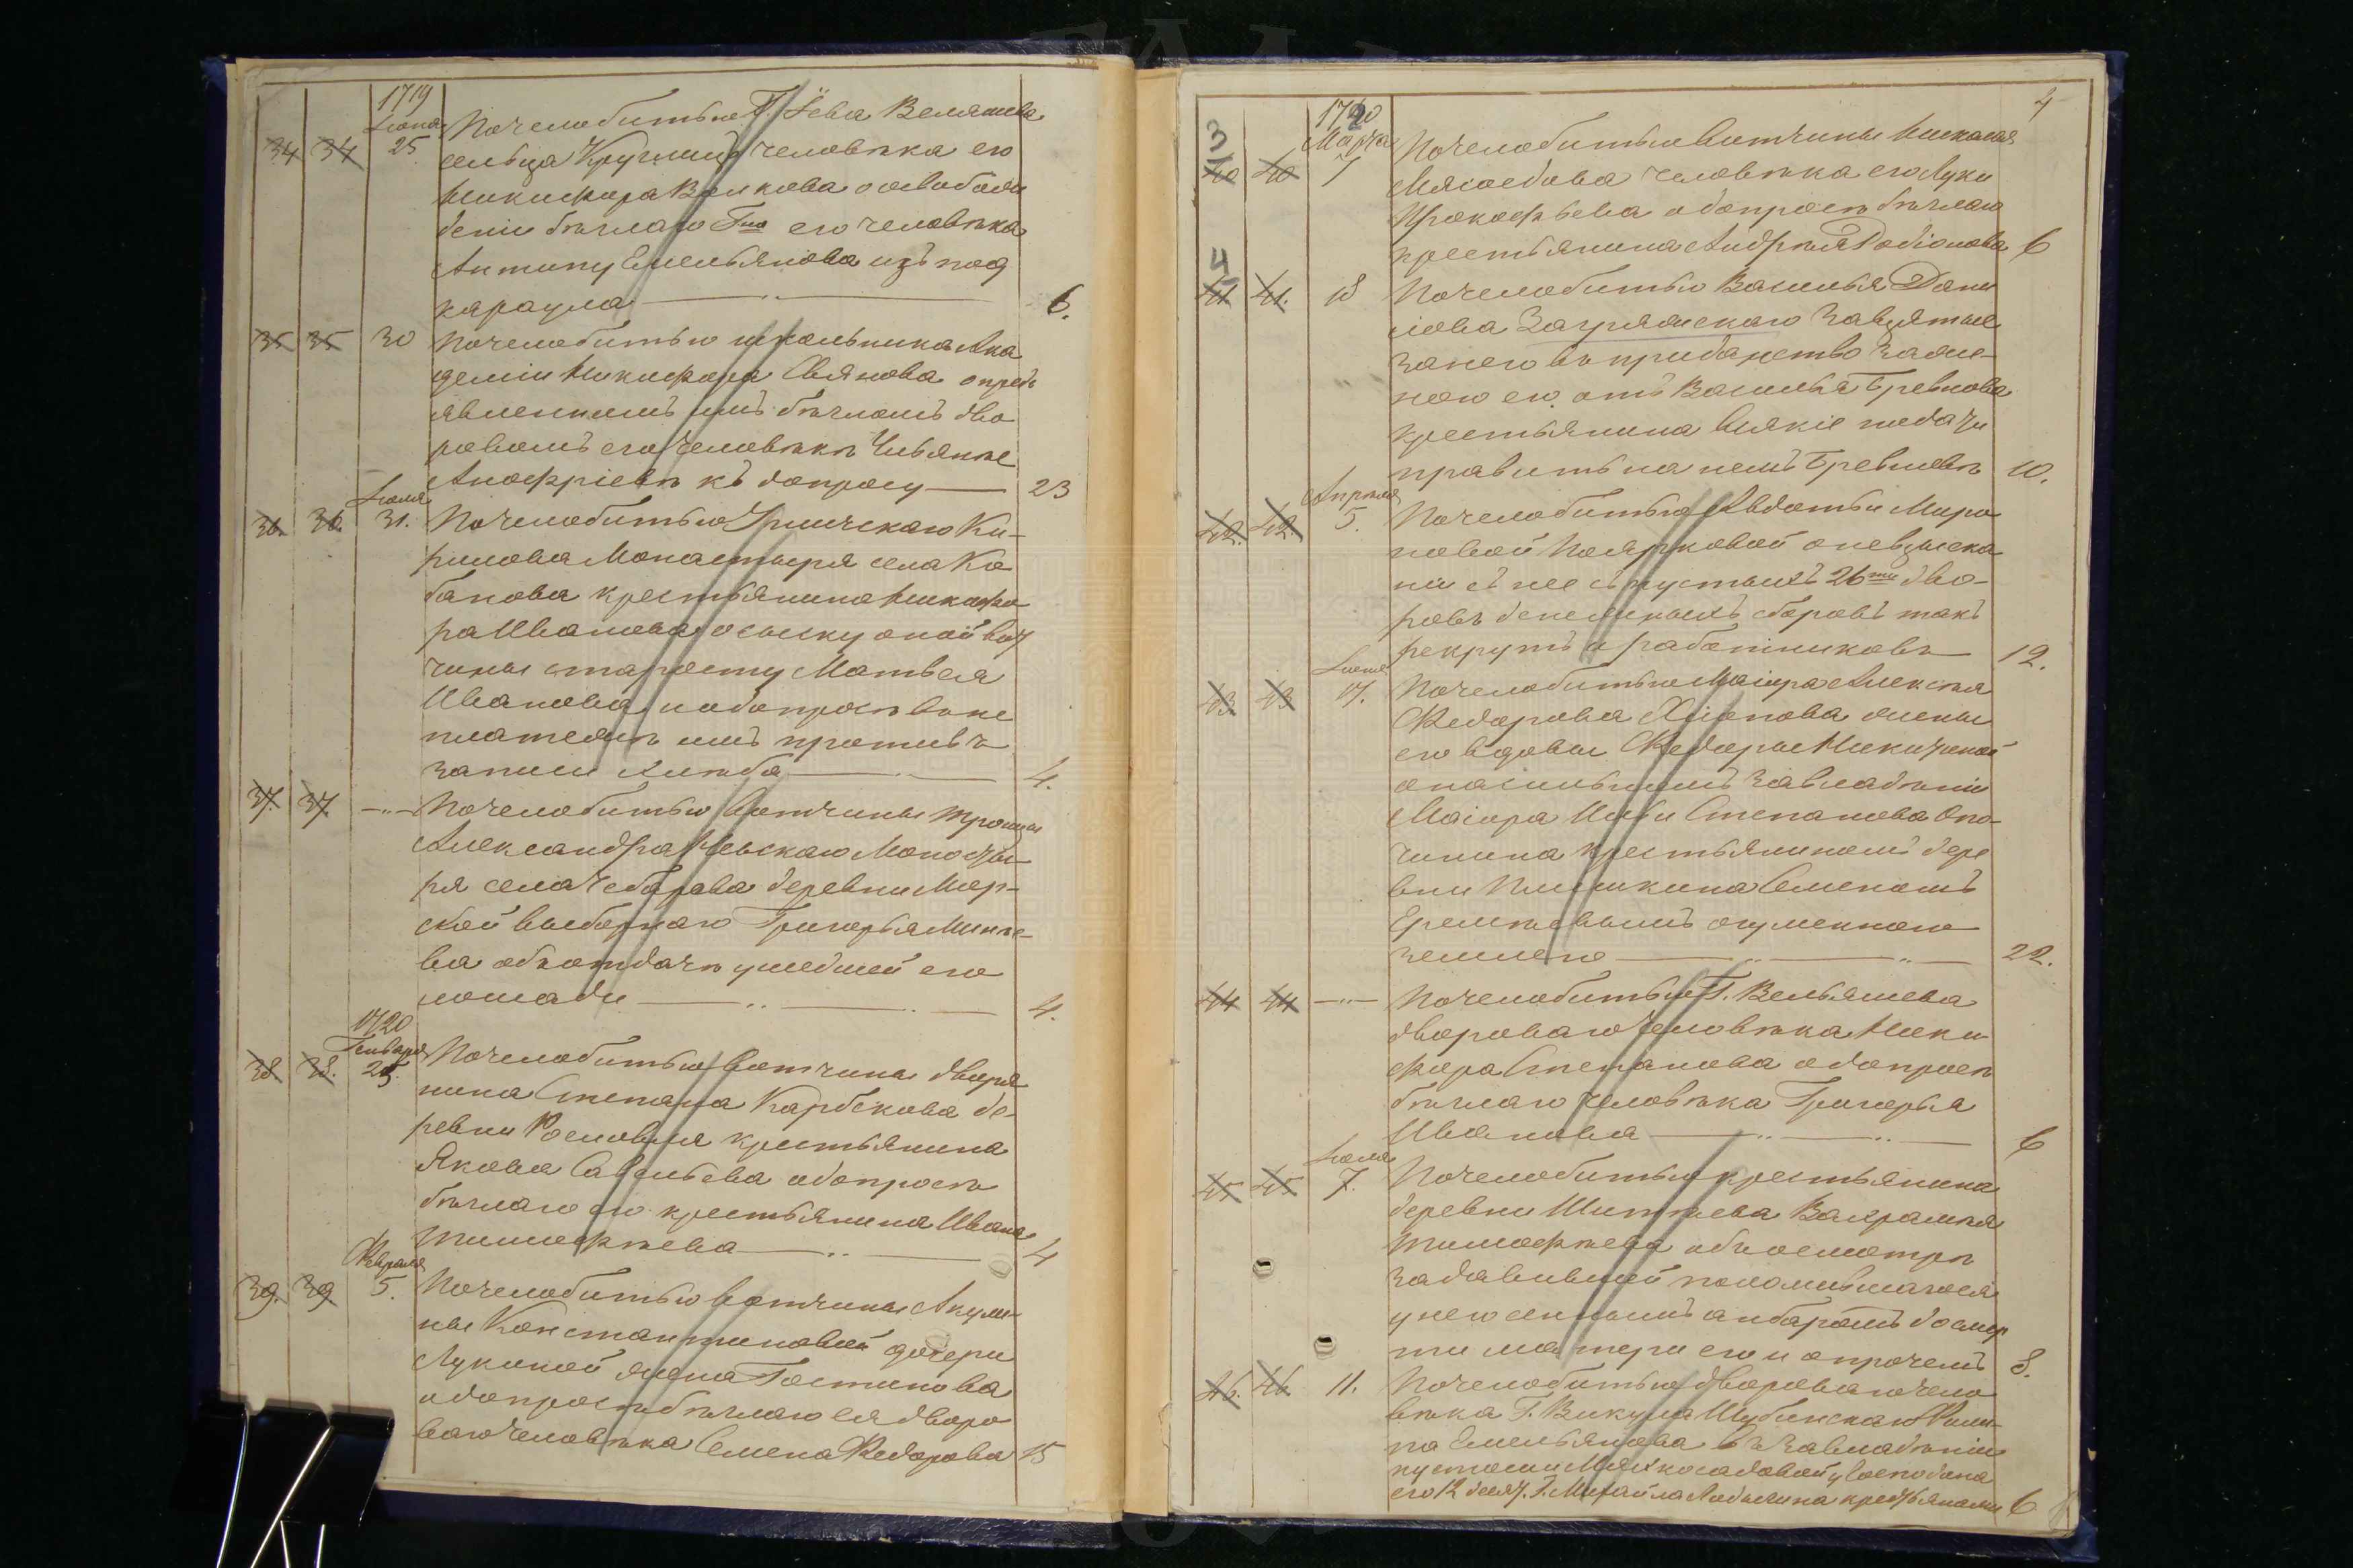 1719
Іюня
34 34 25 По челобитью Г. Іева Веляшева
сельца Круглицъ человѣка его
Никифора Волкова о освобож
деніи бѣглаго Гна его человѣка
Антипу Емельянова изъ под
караула 6.
35 35 30 По челобитью школьника Ака
деміи Никифора Свянова о предъ
явленномъ имъ бѣгломъ дво
ровомъ его человѣкѣ Ульянѣ
Анофріевѣ къ допросу 23
Іюля
36. 36. 31. По челобитью Углическаго Ки-
рилова Монастыря села Ко
банова крестьянина Никифо
ра Иванова о сыску оной вот
чины старосту Матвея
Иванова и о допросѣ в не
платежѣ имъ противъ
записи хлѣба 4.
37. 37. По челобитью вотчины троицы
Александра Невскаго Монасты-
ря села Чебарова деревни Мор-
ской выборнаго Григорья Минѣе-
ва объ отдачѣ ушедшей его
лошади 4.
1720
Генваря
38. 38. 25. По челобитью вотчины дворя
нина Степана Карбекова де-
ревни Рословля крестьянина
Якова Савельева о допросѣ
бѣглаго его крестьянина Ивана
Тимофѣева 4
Февраля
39. 39. 5. По челобитью вотчины Акули-
ны Константиновой дочери
Лукиной жена Гостинова
о допросѣ бѣглаго ея дворо
ваго человѣка Семена Федорова 15
4
1720
3 Марта
40 40 7 По челобитью вотчины Николая
Мясоедова человѣка его Луки
Прокофьева о допросѣ бѣглаго
крестьянина Андрѣя Родіонова 6
4
41 41. 18 По челобитью Василья Дани
лова Загряжскаго за взятые
за него въ приданство за же-
ною его отъ Василья Бревнова
крестьянина всякіе подати
править на немъ Бревновѣ 10.
Апрѣля
42. 42. 5. По челобитью Авдотьи Миро
новой Поярковой о невзыска
ніи съ нее съ пустыхъ 26ти дво-
ровъ денежныхъ сборовъ такъ
рекрутъ и работниковъ 12.
43. 43 17. По челобитью Маіора Алексѣя
Федорова жены
его вдовы Федоры Никитиной
о насильномъ завладѣніи
Маіора Ильи Степанова Опо-
чинина крестьяниномъ дере
вни Пишкина Семеномъ
Еремѣевымъ огуменною
землею 22.
44 44 По челобитью Г. Вельяшева
двороваго человѣка Ники
фора Степанова о допросѣ
бѣглаго человѣка Григорья
Иванова 6
Іюля
45 45 7. По челобитью крестьянина
деревни Шипѣева Вахрамѣя
Тимофѣева объ осмотрѣ
задавившей поломившагося
у него сеннымъ анбаромъ до смер
ти матери его и о прочемъ 8.
46. 46 11. По челобитью двороваго чело
вѣка Г. Викула Шубинскаго Филип-
па Емельянова въ завладѣніи
пустоши Мяхкосадовой у Господина
его 12 десят. Г. Михайла крестьянами 6